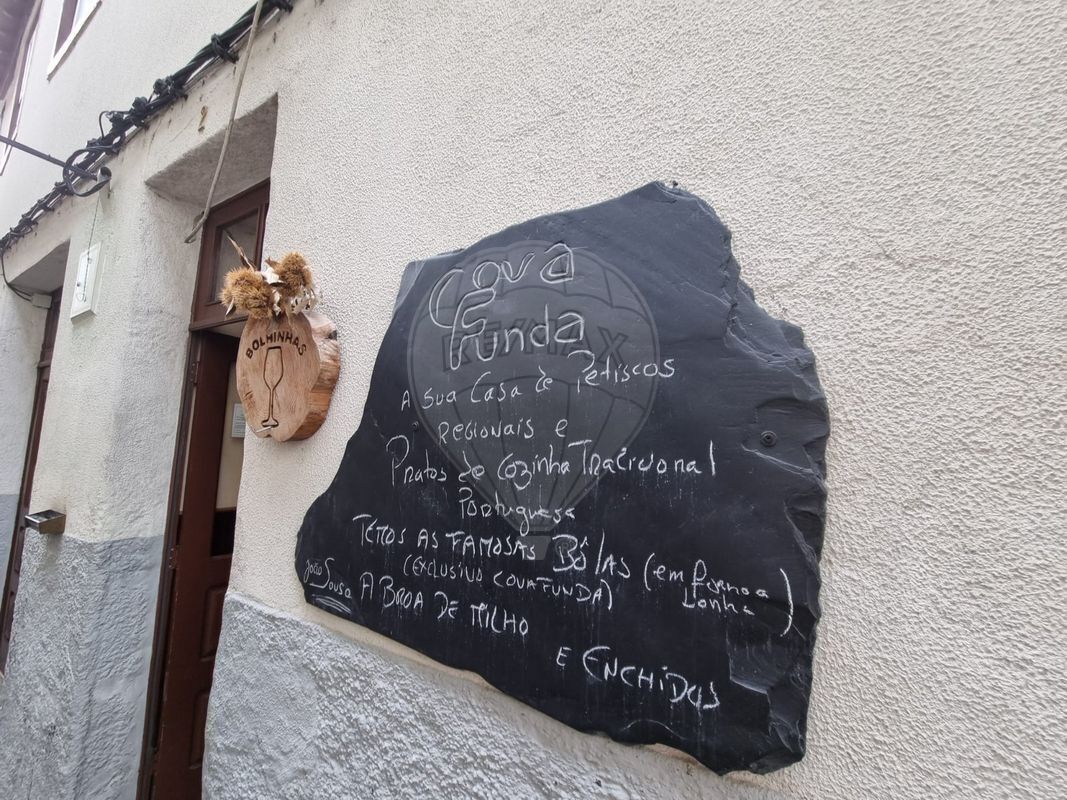 BOLHINHAS
Cova
Funda
RE/MAX
A Sua Casa de Petiscos
REGIONAIS e
Pratos de Cozinha Tradicional
Portuguesa
TEMOS AS FAMOSAS Bôlas (em forno a
Lenha)
(EXCLUSIVO COVA FUNDA)
João Sousa
A BROA DE MILHO
E ENCHIDOS